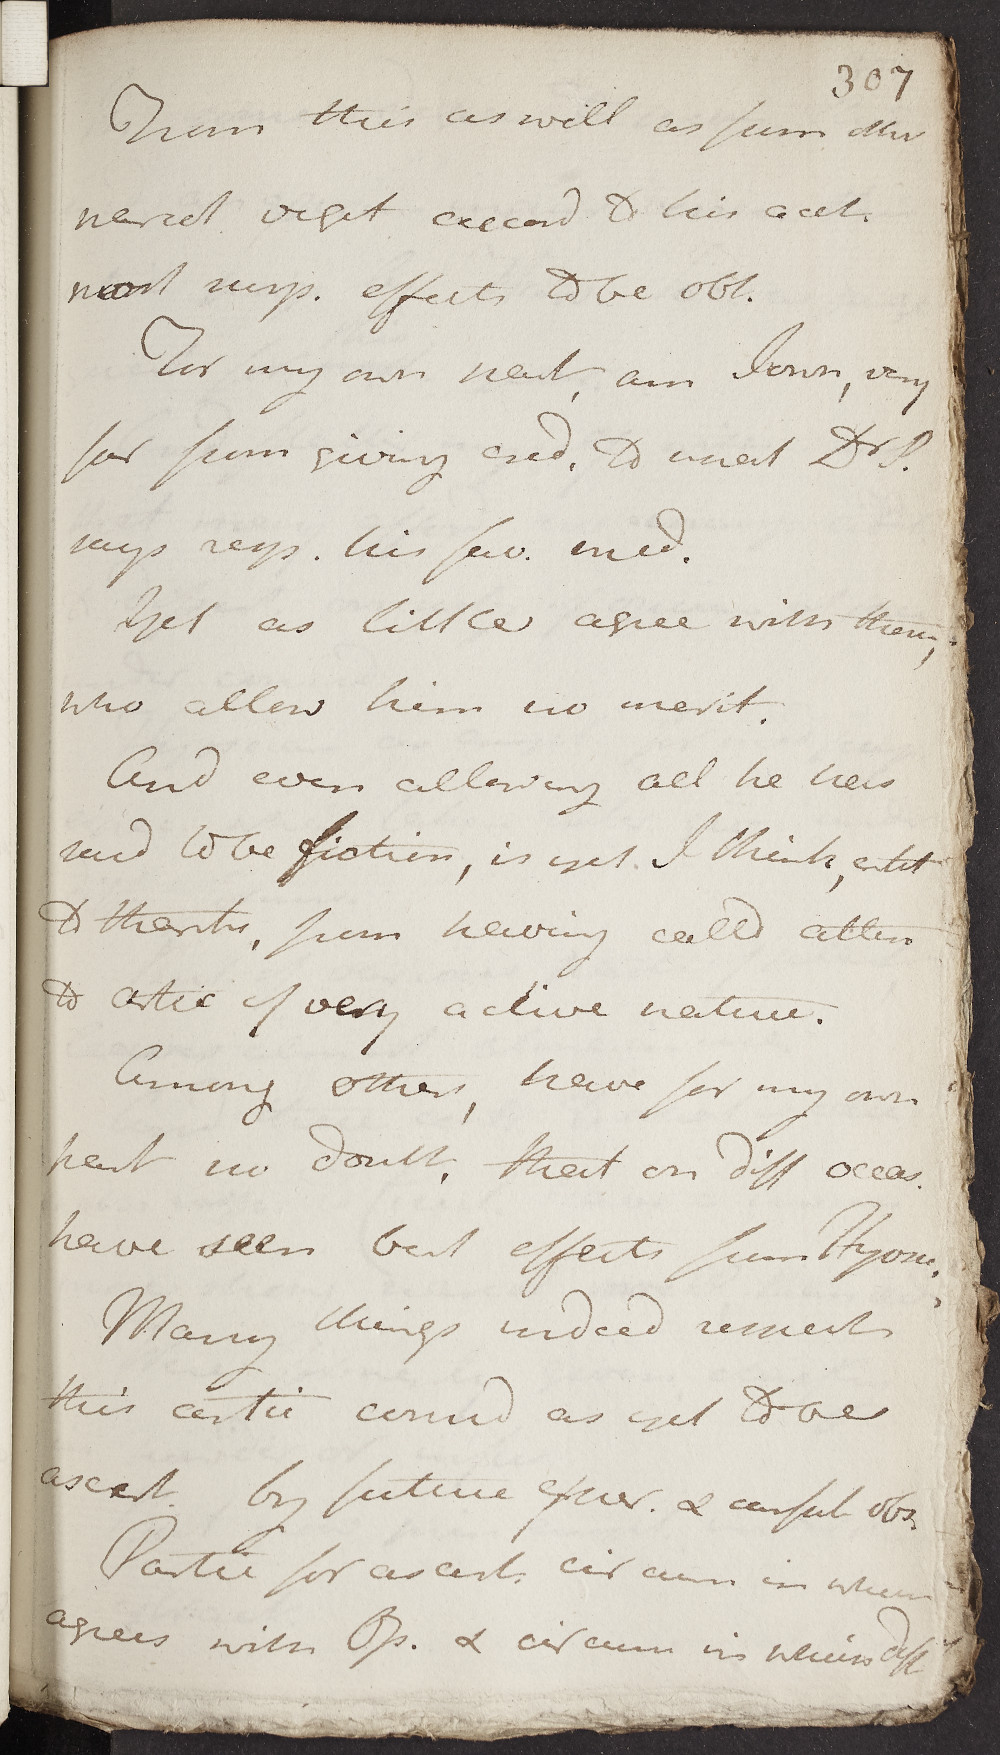 307
From this as well as from other
narcot veget accord to his acct.
most surp. effects to be obt.
For my own part, am I own, very
far from giving cred. to what Dr S.
says resp. his fav. med.
Yet as little agree with them,
who allow him no merit.
And even allowing all he has
said to be fiction, is yet I think, entit
to thanks, from having calld atten
to artic of very active nature.
Among others, have for my own
part no doubt, that on diff occas.
have seen best effects from Hyosc.
Many things indeed
this artic as yet to be
ascert. by future exper. & carful obs.
Partic for ascert. circum in which
agrees with Op. & circum in which diff